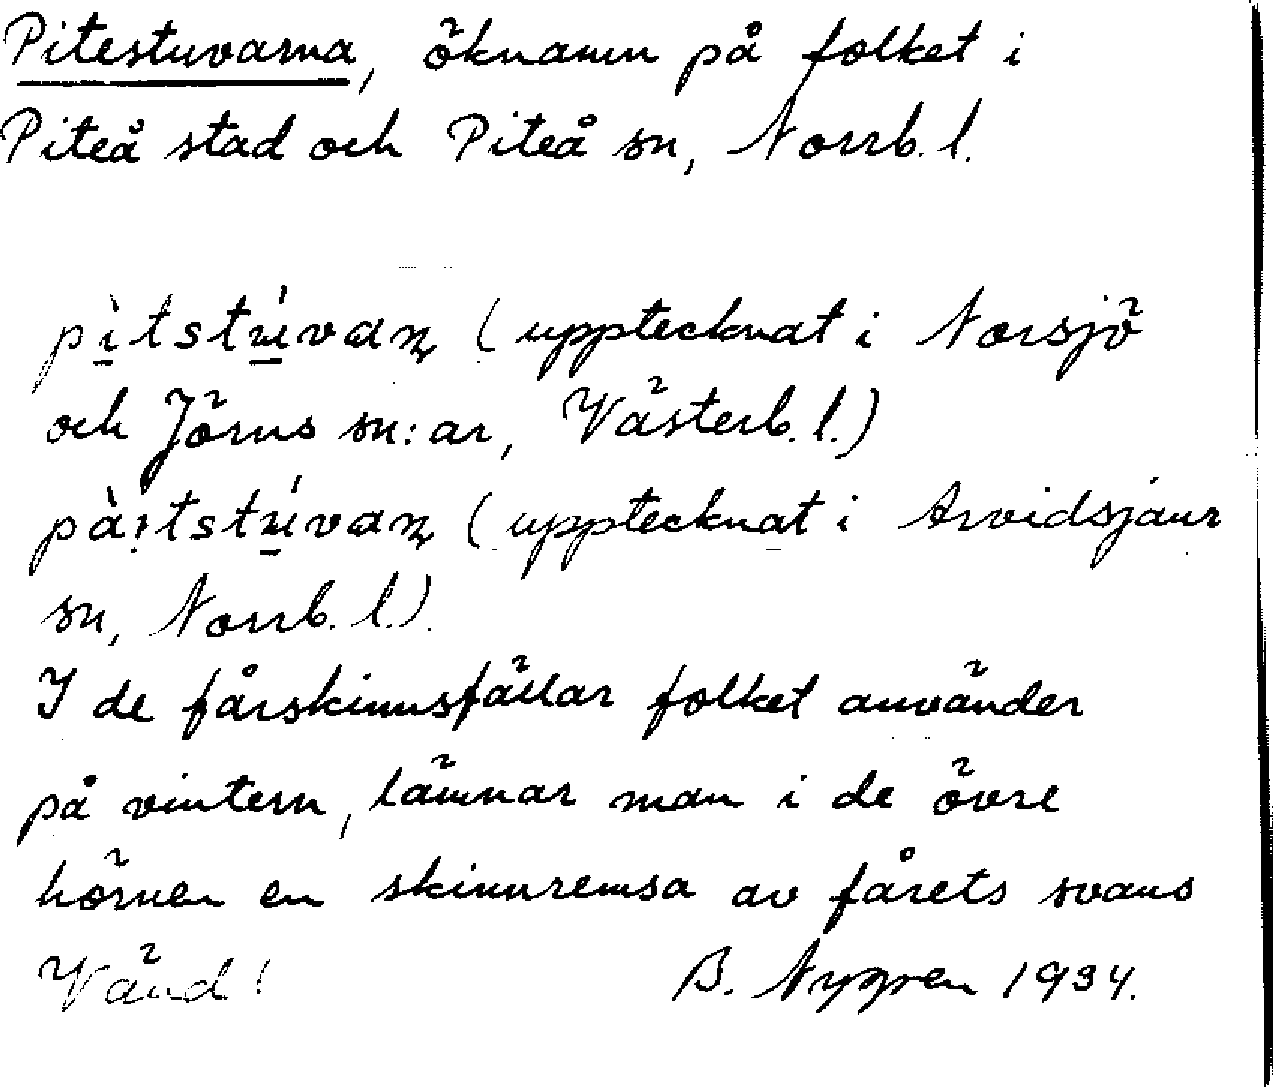 Pitestuvarna, öknamn på folket i
Piteå stad och Piteå sn, Norrb. l.
pìtstú̱vaṇ (upptecknat i Norsjö
och Jörns sn:ar, Västerb. l.)
pàitstú̱vaṇ (upptecknat i Arvidsjaur
sn, Norrb. l.)
I de fårskinnsfällar folket använder
på vintern, lämnar man i de övre
hörnen en skinnremsa av fårets svans
Vänd! B. Nygren 1934.